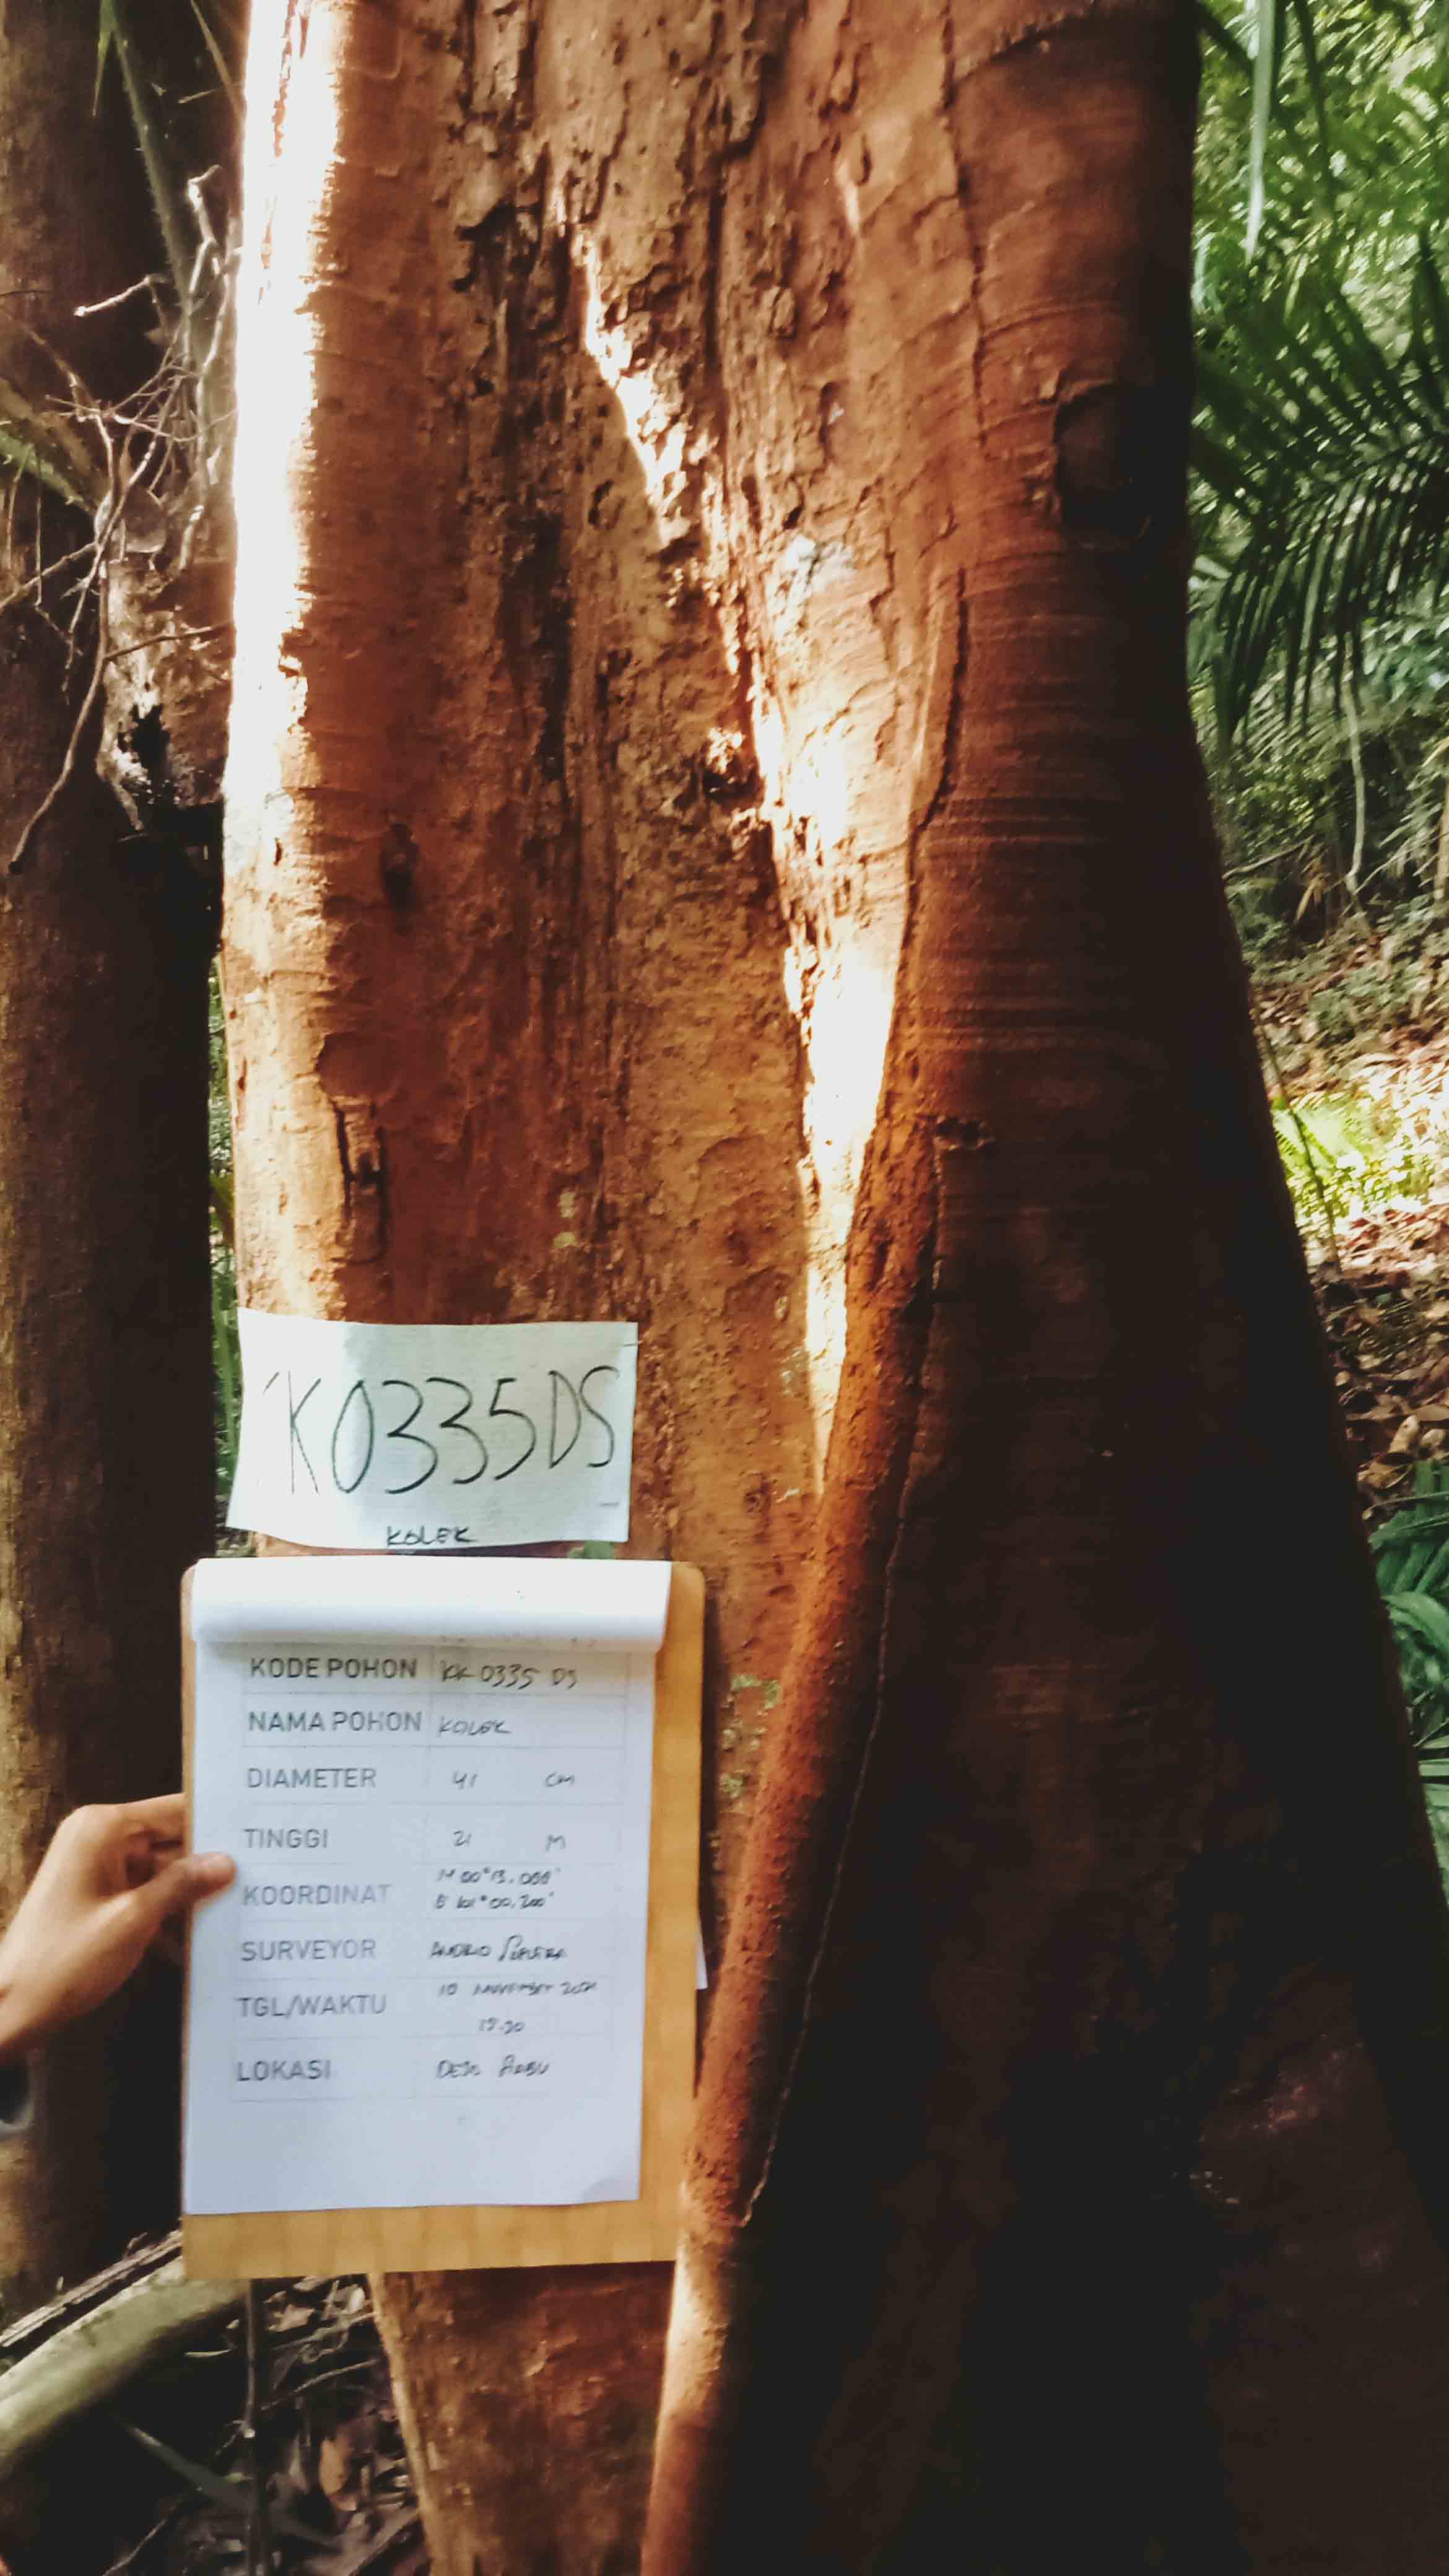 KK0335DS
KOLEK
KODE POHON KK 0335 DS
NAMA POHON KOLEK
DIAMETER 41 CM
TINGGI 21 M
KOORDINAT N 00°13.
E 101°00.200'
SURVEYOR ANDRO
TGL/WAKTU 10 NOVEMBER
LOKASI